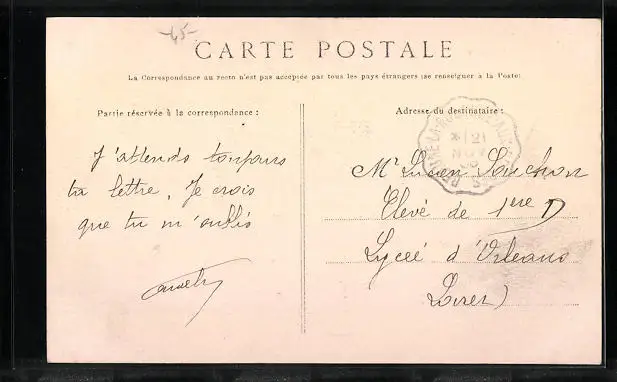 -45-
CARTE POSTALE
La Correspondance au recto n'est pas acceptée par tous les pays étrangers (se renseigner à la Poste)
Partie réservée à la correspondance :
J'attends toujours
ta lettre. Je crois
que tu m'oublis
Adresse du destinataire :
Mr Lucien Souchon
Elevé de 1ere D
Lyceé d'Orleans
Loiret)